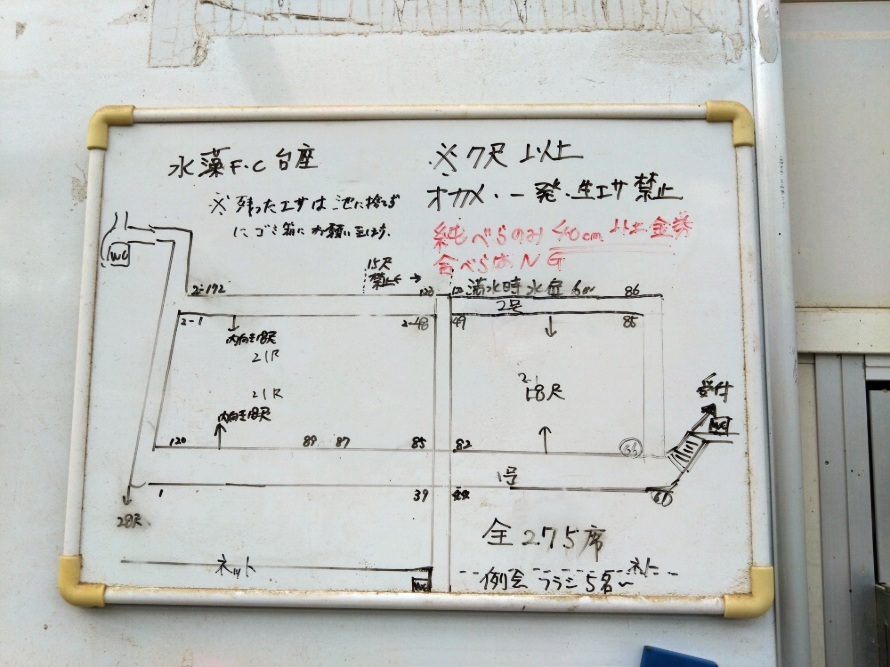 水藻F.C 台座
※ 残ったエサは池に捨てず
に ゴミ箱に お願い致します。
※ 7尺 以上
オカメ・一発・生エサ禁止
純べらのみ 40cm 以上金券
合べらは NG
WC
15尺
禁止 →
2-192
123
満水時水位 6m
86
2号
2-1
2-48
49
85
内向き18尺
21尺
21尺
内向き18尺
18尺
受付
WC
120
89
87
85
82
1号
1
39
28尺
全 275席
ネット
ネット
WC
例会 フラシ 5名〜